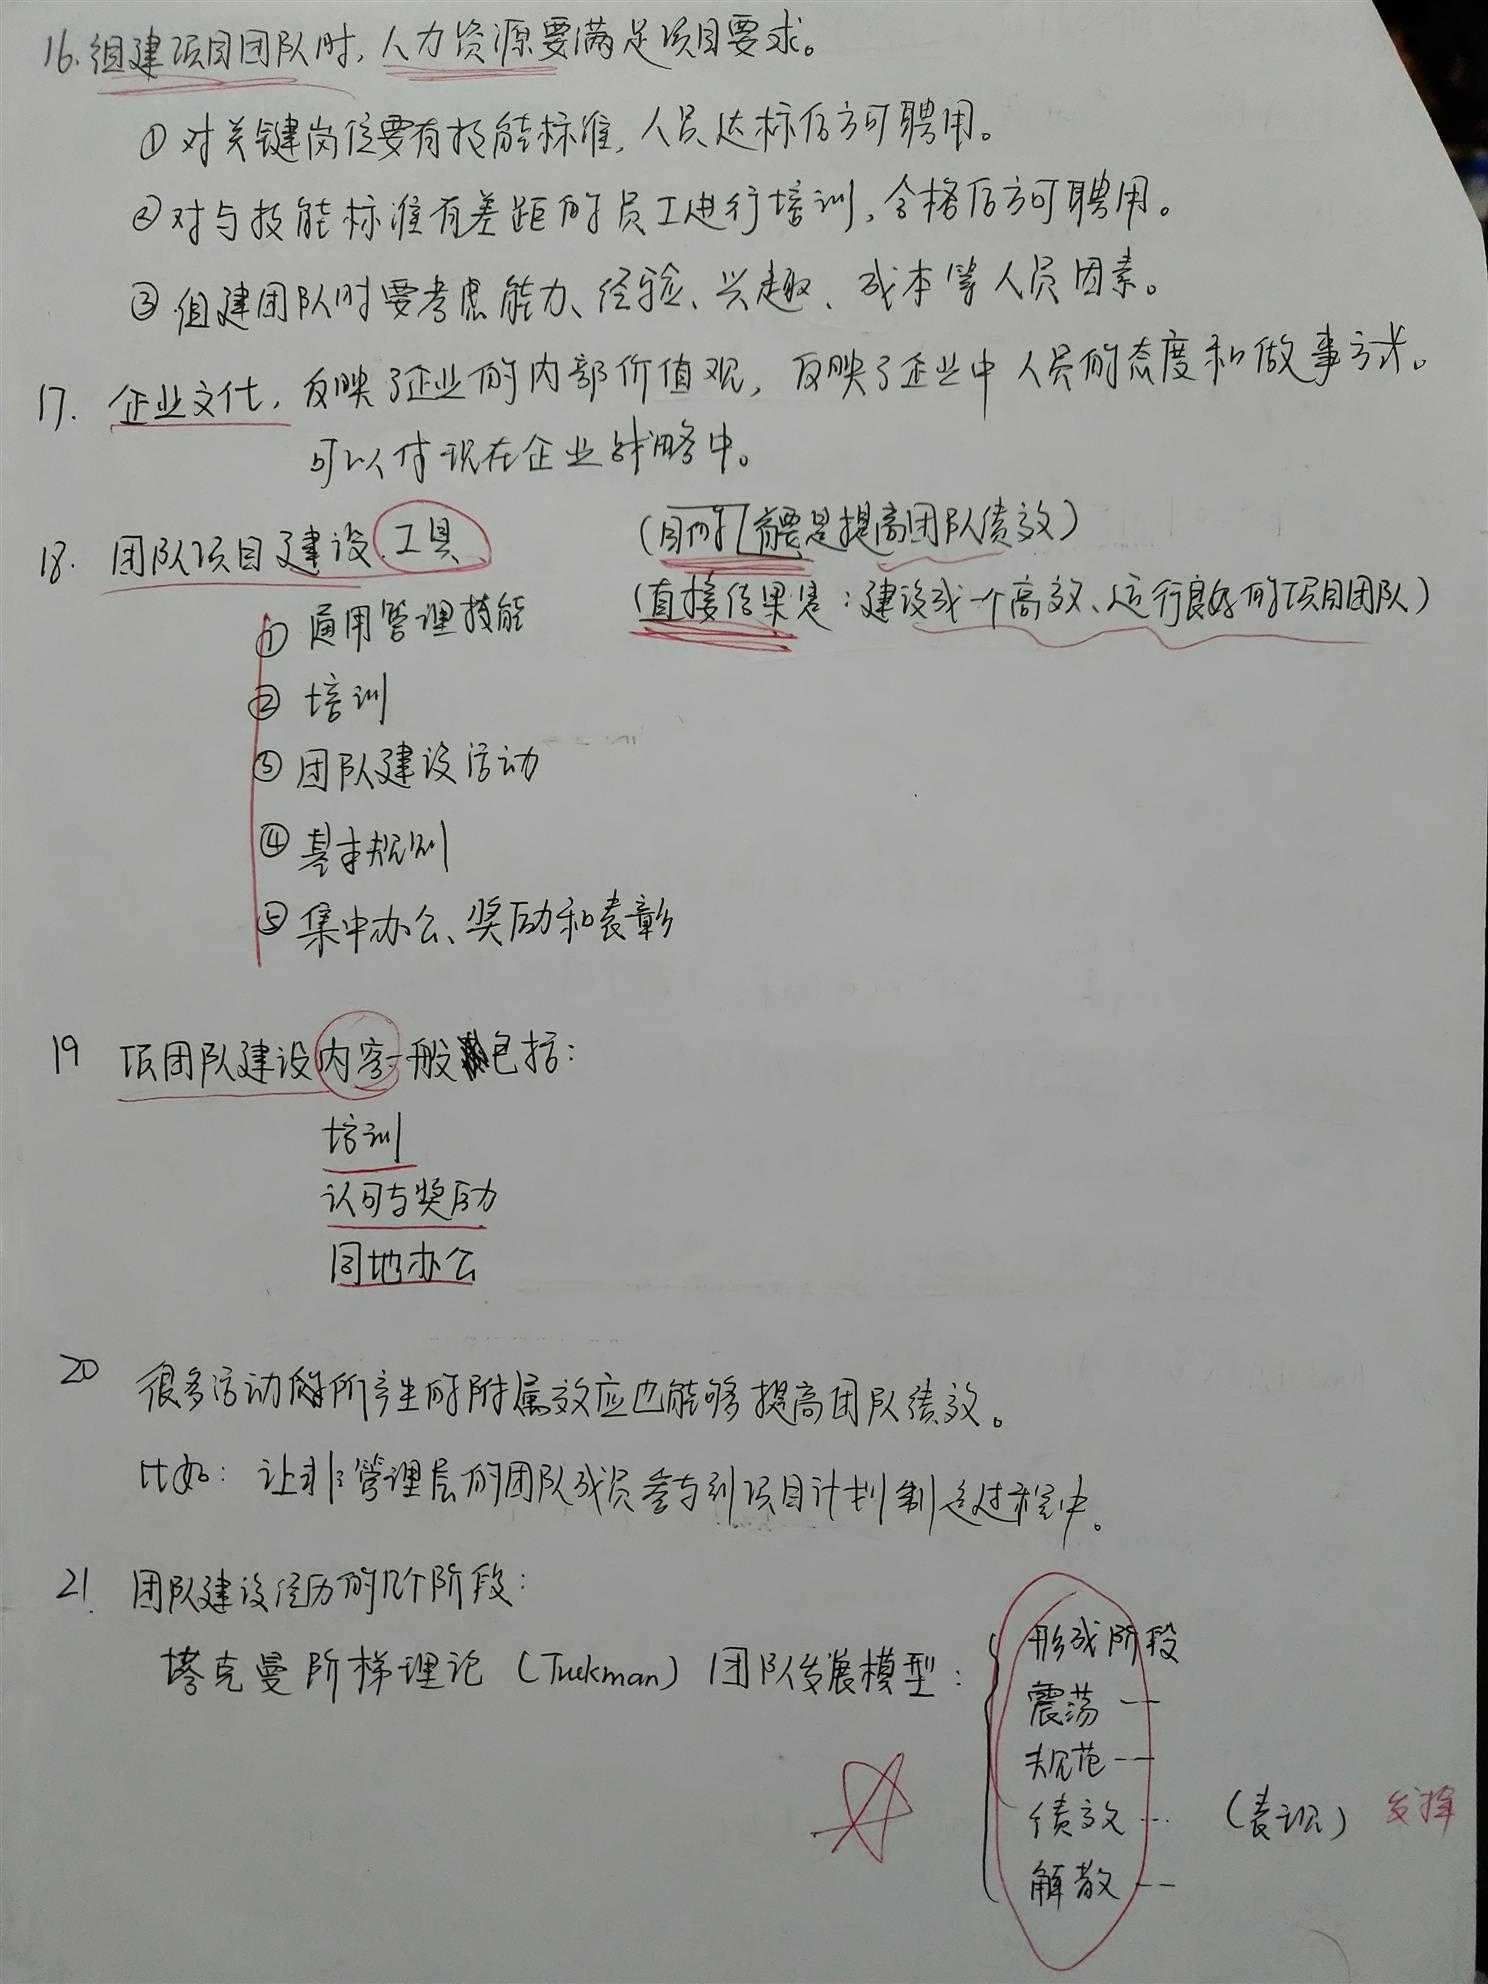 16. 组建项目团队时，人力资源要满足项目要求。
① 对关键岗位要有技能标准，人员达标后方可聘用。
② 对与技能标准有差距的员工进行培训，合格后方可聘用。
③ 组建团队时要考虑能力、经验、兴趣、成本等人员因素。
17. 企业文化，反映了企业的内部价值观，反映了企业中人员的态度和做事方式。
可以体现在企业战略中。
18. 团队项目建设工具 （目的需要是提高团队绩效）
① 通用管理技能 （直接结果是：建设成一个高效、运行良好的项目团队）
② 培训
③ 团队建设活动
④ 基本规则
⑤ 集中办公、奖励和表彰
19 项团队建设内容一般包括：
培训
认可与奖励
同地办公
20 很多活动所产生的附属效应也能够提高团队绩效。
比如：让非管理层的团队成员参与到项目计划制定过程中。
21. 团队建设经历的几个阶段：
塔克曼阶梯理论（Tuckman）团队发展模型：
形成阶段
震荡 --
规范 --
绩效 -- （表现） 发挥
解散 --